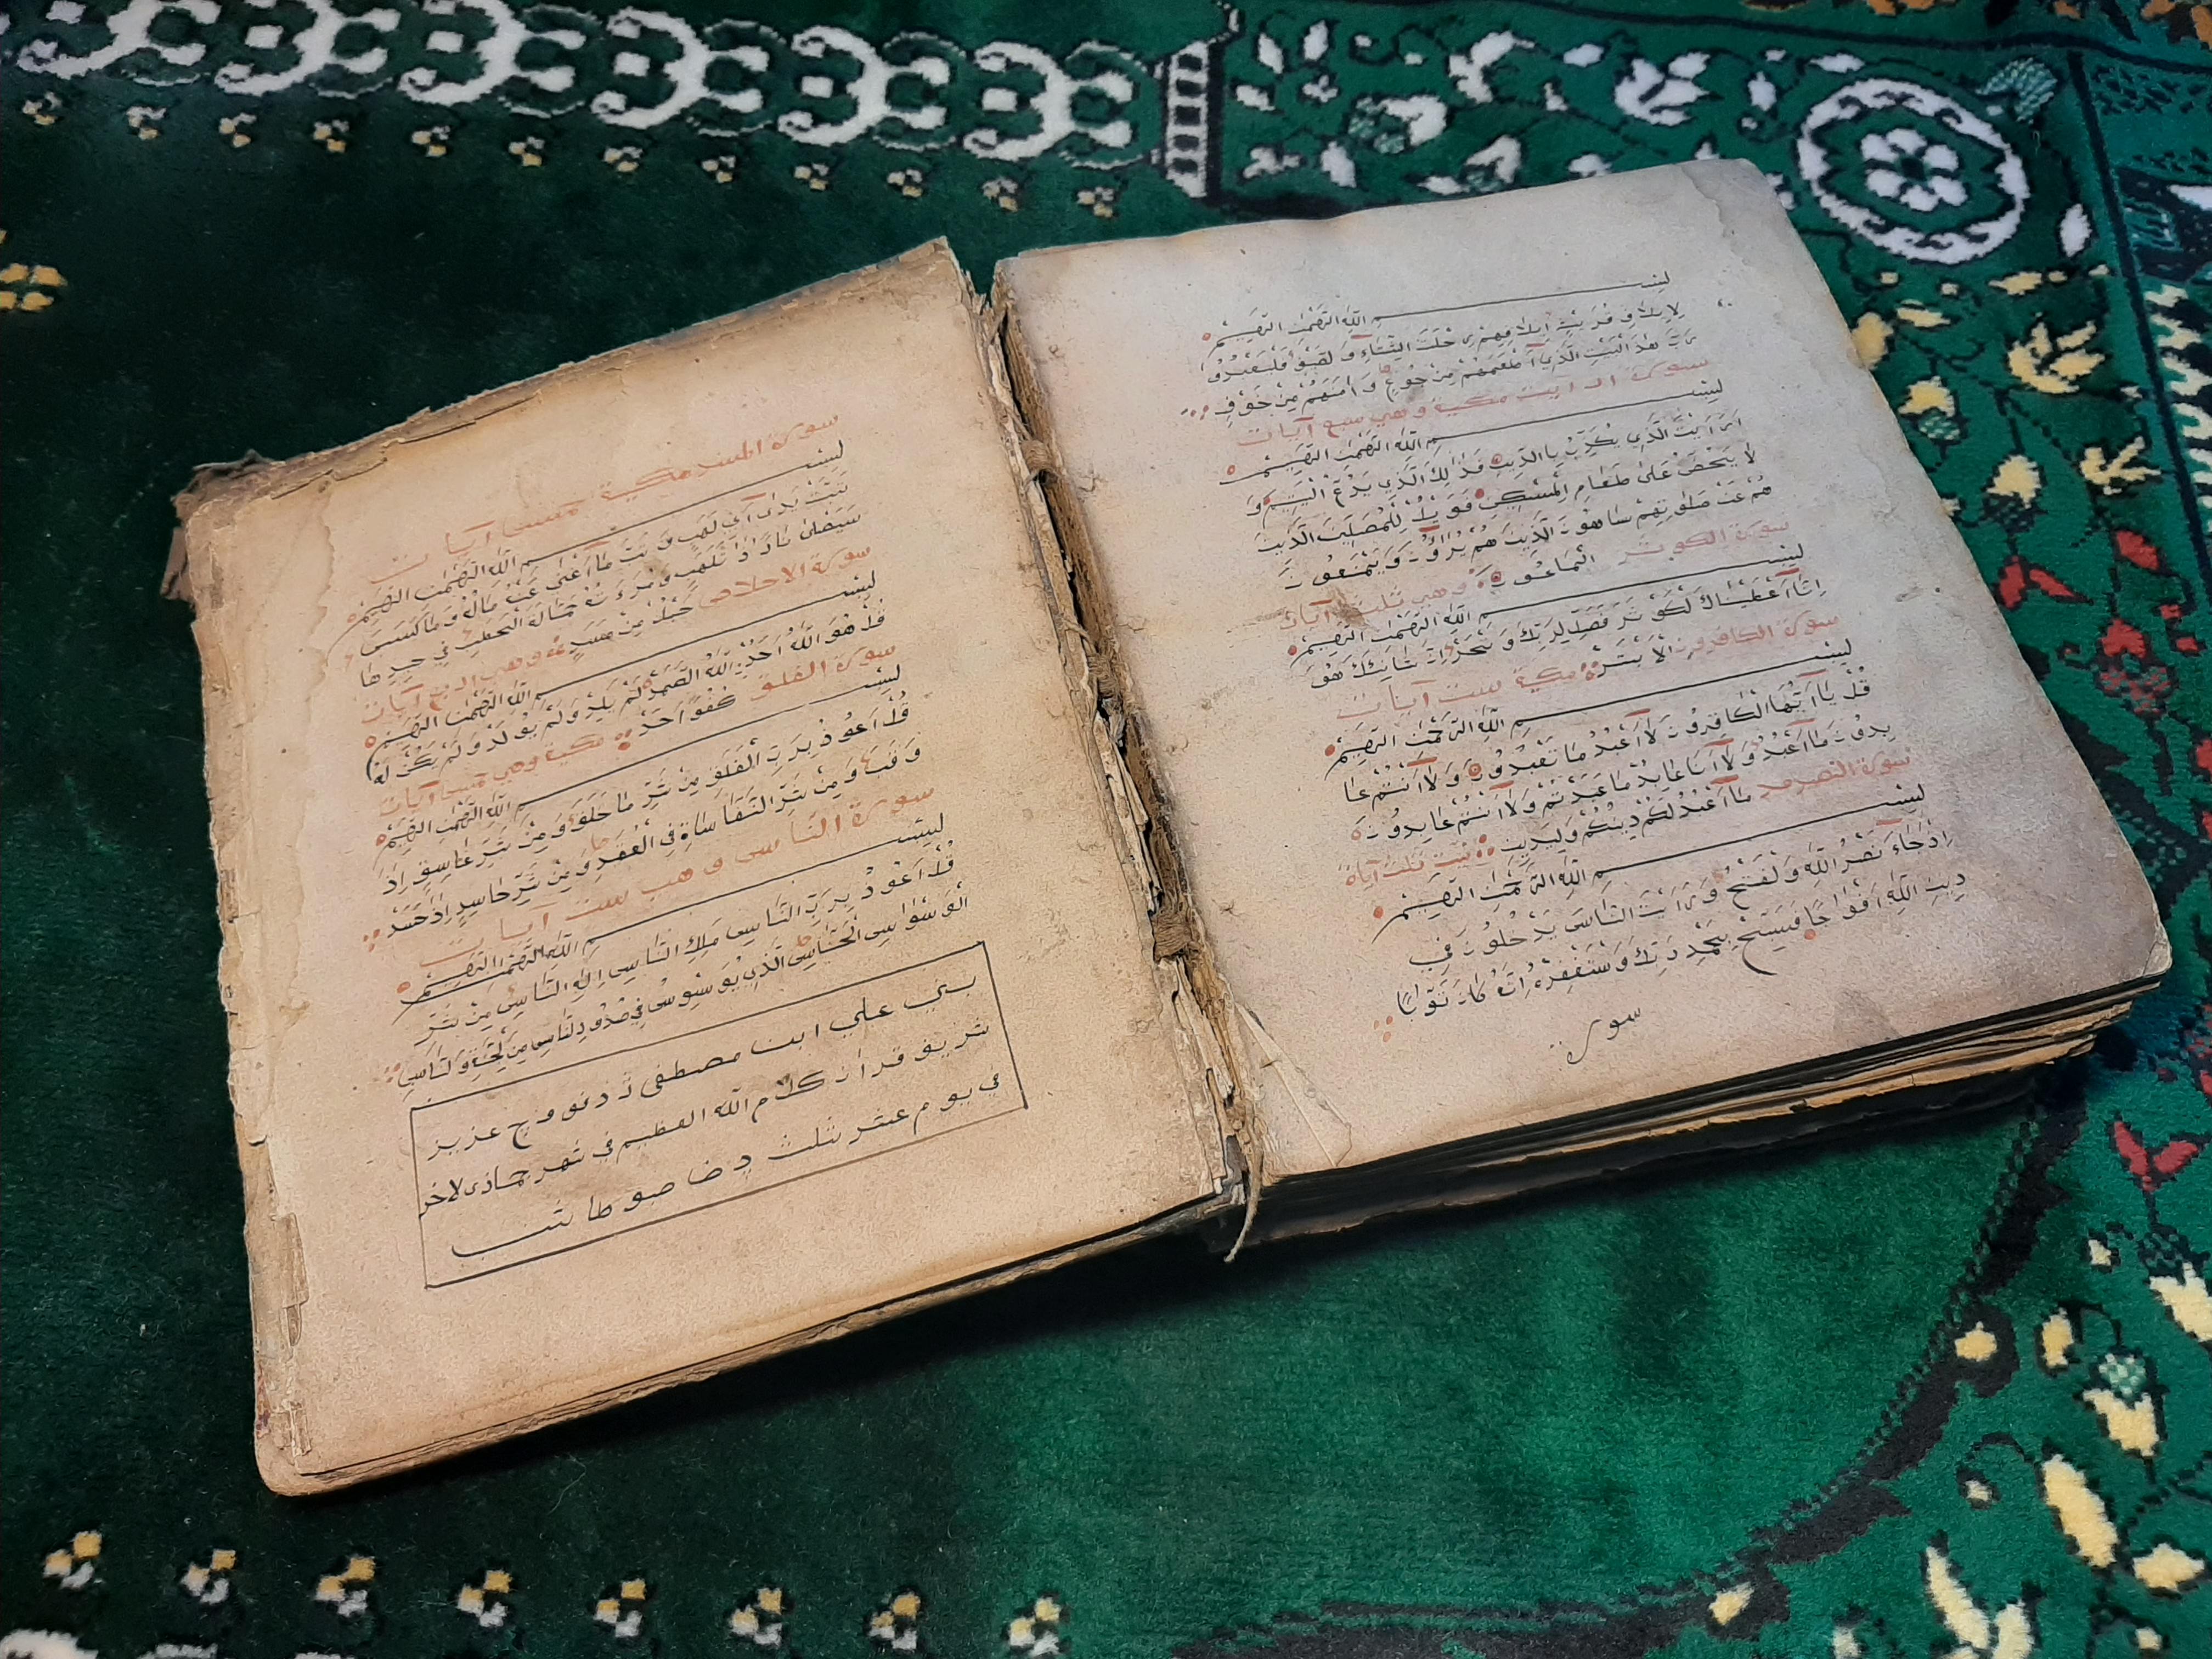 بِسْــــــمِ اللَّهِ الرَّحْمٰنِ الرَّحِيْمِ
لِاِيلَافِ قُرَيْشٍ اِيلَافِهِمْ رِحْلَتَ الشِّتَاءِ وَلصَّيْفِ فَلْيَعْبُدُوْا
رَبَّ هٰذَ الْبَيْتِ الَّذِيْ اَطْعَمَهُمْ مِنْ جُوْعٍ وَاٰمَنَهُمْ مِنْ خَوْفٍ
سورة ارايت مكية وهي سبع آيات
بِسْــــــمِ اللَّهِ الرَّحْمٰنِ الرَّحِيْمِ
اَرَاَيْتَ الَّذِي يُكَذِّبُ بِاالدِّيْنِ فَذٰلِكَ الَّذِي يَدُعُّ الْيَتِيْمَ وَ
لَا يَحُضُّ عَلٰى طَعَامِ الْمِسْكِيْنِ فَوَيْلٌ لِلْمُصَلِّيْنَ الَّذِيْنَ
هُمْ عَنْ صَلَاتِهِمْ سَاهُوْنَ الَّذِيْنَ هُمْ يُرَاؤُنَ وَيَمْنَعُوْنَ
سورة الكوثر الْمَاعُوْنَ وهي ثلث آيات
بِسْــــــمِ اللَّهِ الرَّحْمٰنِ الرَّحِيْمِ
اِنَّا اَعْطَيْنَاكَ لْكَوْثَرَ فَصَلِّ لِرَبِّكَ وَنْحَرْ اِنَّ شَانِئَكَ هُوَ
سورة الكافرون الْاَبْتَرُ مكية ست آيات
بِسْــــــمِ اللَّهِ الرَّحْمٰنِ الرَّحِيْمِ
قُلْ يَا اَيُّهَا الْكَافِرُوْنَ لَا اَعْبُدُ مَا تَعْبُدُوْنَ وَلَا اَنْتُمْ عَا
بِدُوْنَ مَا اَعْبُدُ وَلَا اَنَا عَابِدٌ مَا عَبَدْتُمْ وَلَا اَنْتُمْ عَابِدُوْنَ
سورة النصر مد مَا اَعْبُدُ لَكُمْ دِيْنُكُمْ وَلِيَ دِيْنِ نية ثلث آياة
بِسْــــــمِ اللَّهِ الرَّحْمٰنِ الرَّحِيْمِ
اِذَا جَاءَ نَصْرُ اللَّهِ وَلْفَتْحُ وَرَاَيْتَ النَّاسَ يَدْخُلُوْنَ فِي
دِيْنِ اللَّهِ اَفْوَاجًا فَسَبِّحْ بِحَمْدِ رَبِّكَ وَسْتَغْفِرْهُ اِنَّهُ كَانَ تَوَّابًا
سورة
سورة المسد مكية خمس آيات
بِسْــــــمِ اللَّهِ الرَّحْمٰنِ الرَّحِيْمِ
تَبَّتْ يَدَا اَبِي لَهَبٍ وَتَبَّ مَا اَغْنٰى عَنْهُ مَالُهُ وَمَا كَسَبَ
سَيَصْلٰى نَارًا ذَاتَ لَهَبٍ وَمْرَءَتُهُ حَمَّالَةَ الْحَطَبِ فِي جِيدِهَا
سورة الاخلاص حَبْلٌ مِنْ مَسَدٍ وهي اربع آيات
بِسْــــــمِ اللَّهِ الرَّحْمٰنِ الرَّحِيْمِ
قُلْ هُوَ اللَّهُ اَحَدٌ اَللَّهُ الصَّمَدُ لَمْ يَلِدْ وَلَمْ يُولَدْ وَلَمْ يَكُنْ لَهُ
سورة الفلق كُفُوًا اَحَدٌ مكية وهي خمس آيات
بِسْــــــمِ اللَّهِ الرَّحْمٰنِ الرَّحِيْمِ
قُلْ اَعُوْذُ بِرَبِّ الْفَلَقِ مِنْ شَرِّ مَا خَلَقَ وَمِنْ شَرِّ غَاسِقٍ اِذَا
وَقَبَ وَمِنْ شَرِّ النَّفَّاسَاةِ فِي الْعُقَدِ وَمِنْ شَرِّ حَاسِدٍ اِذَا حَسَدَ
سورة الناس وهي ست آيات
بِسْــــــمِ اللَّهِ الرَّحْمٰنِ الرَّحِيْمِ
قُلْ اَعُوْذُ بِرَبِّ النَّاسِ مَلِكِ النَّاسِ اِلٰهِ النَّاسِ مِنْ شَرِّ
الْوَسْوَاسِ الْخَنَّاسِ الَّذِي يُوَسْوِسُ فِي صُدُورِ لنَّاسِ مِنَ لْجِنَّةِ وَلنَّاسِ
علي ابن مصطفى عزيز
قران كلام الله العظيم في شهر جماذى لاخر
في يوم عشر ثلث